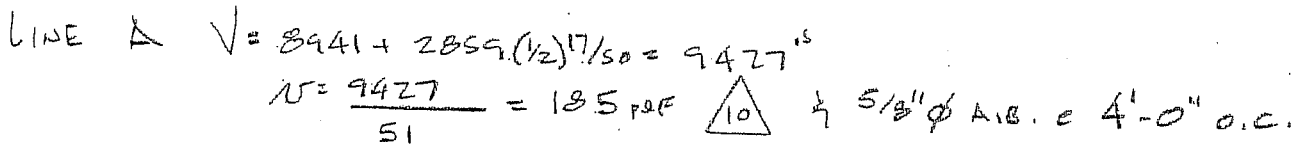 LINE A V= 8941 + 2859(1/2)17/50 = 9427 lbs
v= 9427/51 = 185 plf 10 & 5/8"φ A.B. @ 4'-0" o.c.